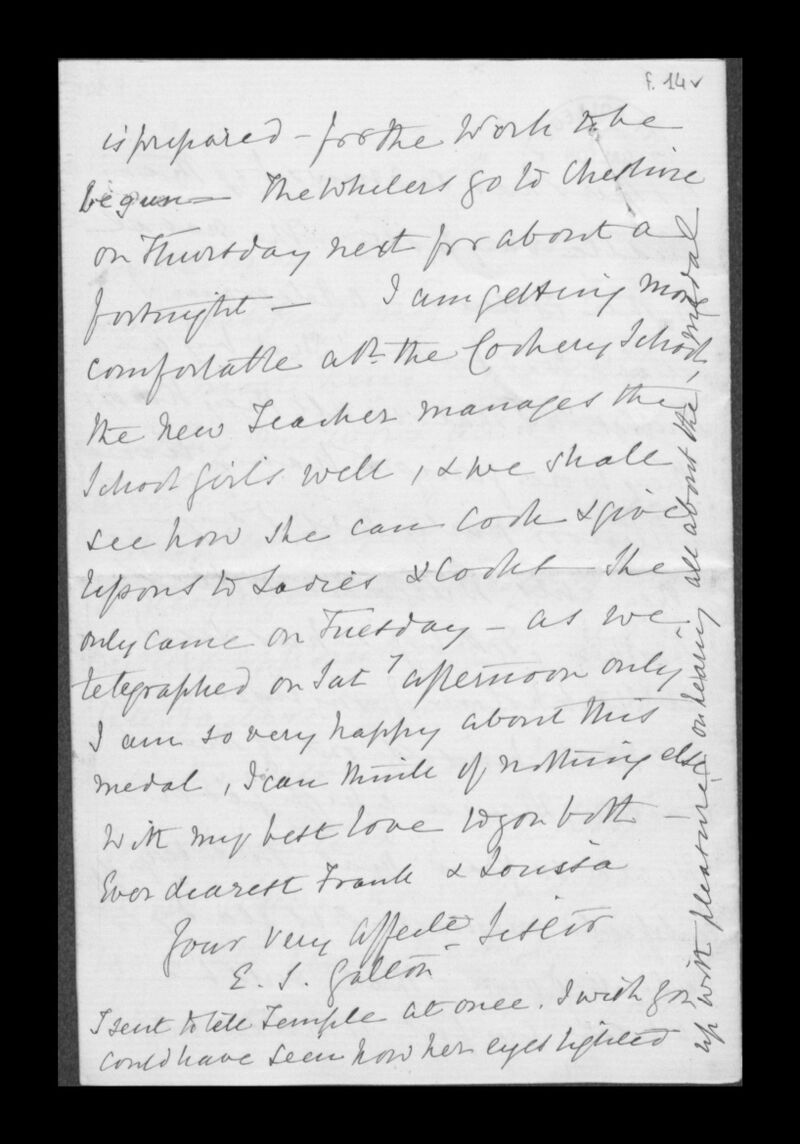 f. 14v
is prepared – for the Work to be
begun – The Whelers go to Cheshire
on Thursday next for about a
fortnight – I am getting more
comfortable abt. the Cookery School,
the new Teacher manages the
School girls well, & we shall
see how she can cook & give
lessons to Ladies & Cooks – She
only came on Tuesday – as we
telegraphed on Sat y afternoon only
I am so very happy about this
medal, I can think of nothing else
With my best love to you both –
Ever dearest Frank & Louisa
Your very affecte Sister
E. S. Galton
I sent to tell Temple at once. I wish you
could have seen how her eyes lighted
up with pleasure on hearing all about the medal